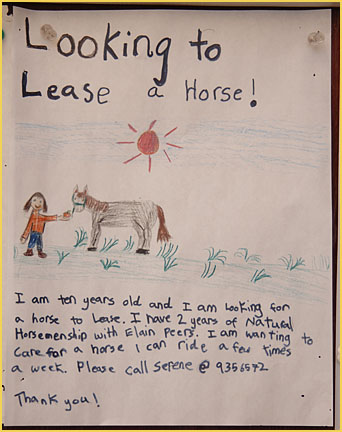 Looking to
Lease a Horse!
I am ten years old and I am looking for
a horse to Lease. I have 2 years of Natural
Horsemenship with Elain Peers. I am wanting to
Care for a horse I can ride a few times
a week. Please call Serene @ 9356572
Thank you!